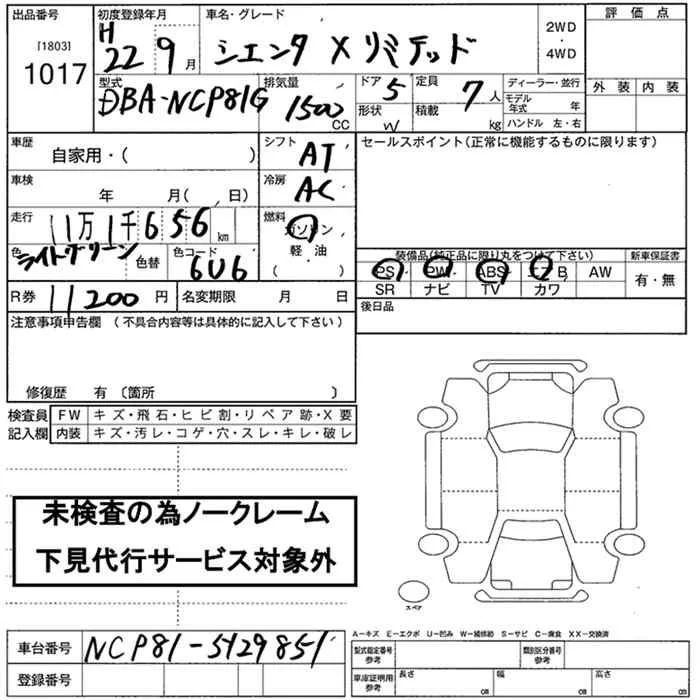 出品番号 初度登録年月 車名・グレード 評価点
[1803] H 2WD
1017 22 9月 シエンタ Xリミテッド ・
4WD
型式 排気量 ドア 定員 ディーラー・並行 外装 内装
DBA-NCP81G 1500 CC 5 7人 モデル年式 年
形状 W 積載 kg ハンドル 左・右
車歴 シフト セールスポイント(正常に機能するものに限ります)
自家用・( ) AT
車検 冷房
年 月( 、日) AC
走行 燃料
11万1千656km ガソリン
色 軽・油
ライトグリーン 色替 色コード 6U6 ( )
装備品(純正品に限り丸をつけて下さい) 新車保証書
PS PW ABS エアB AW 有・無
SR ナビ TV カワ
R券 11200円 名変期限 月 日 後日品
注意事項申告欄 (不具合内容等は具体的に記入して下さい)
修復歴 有 〔箇所 〕
検査員 FW キズ・飛石・ヒビ割・リペア跡・X要
記入欄 内装 キズ・汚レ・コゲ・穴・スレ・キレ・破レ
未検査の為ノークレーム
下見代行サービス対象外
スペア
A-キズ E-エクボ U-凹み W-補修跡 S-サビ C-腐食 XX-交換済
車台番号 NCP81-5129851 型式指定番号 参考 類別区分番号 参考
登録番号 車庫証明用 参考 長さ cm 幅 cm 高さ cm